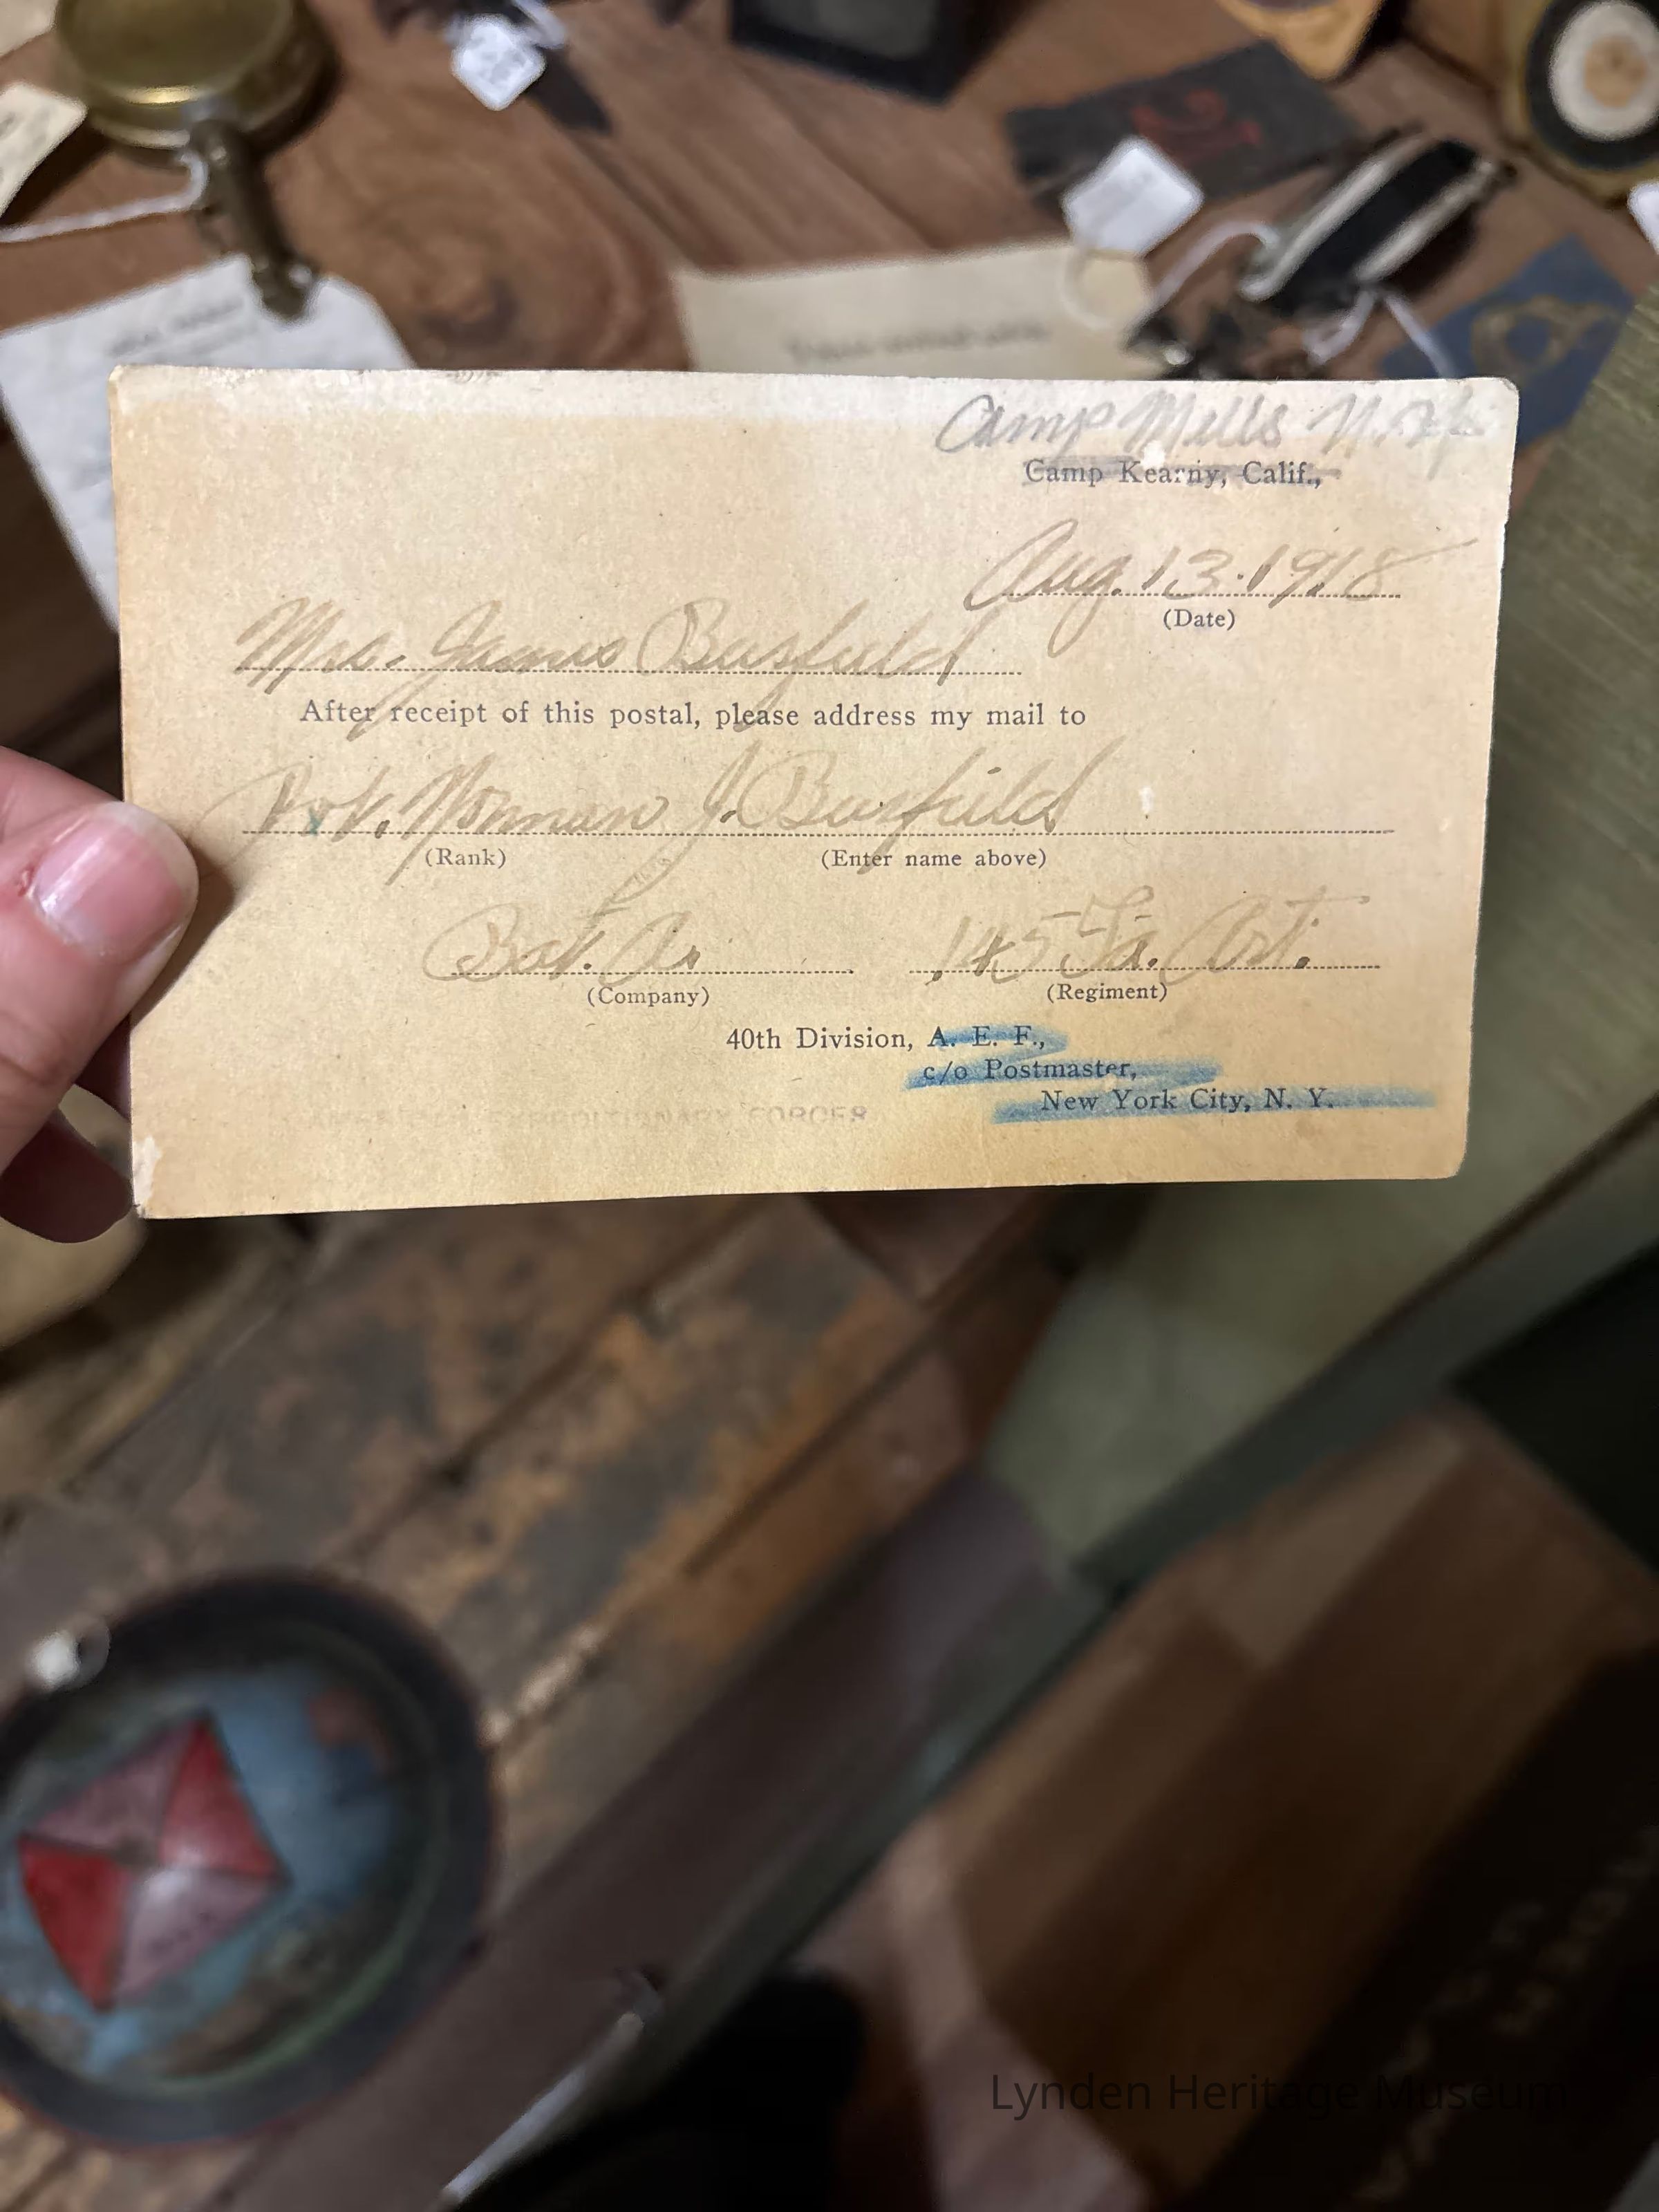 Camp Mills N.Y.
Camp Kearny, Calif.,
Aug. 13. 1918
(Date)
Mrs. James Busfield
After receipt of this postal, please address my mail to
Pvt. Norman J. Busfield
(Rank) (Enter name above)
Bat. A. 145 Fa. Art.
(Company) (Regiment)
40th Division, A. E. F.,
c/o Postmaster,
New York City, N. Y.
EXPEDITIONARY FORCES
Lynden Heritage Museum